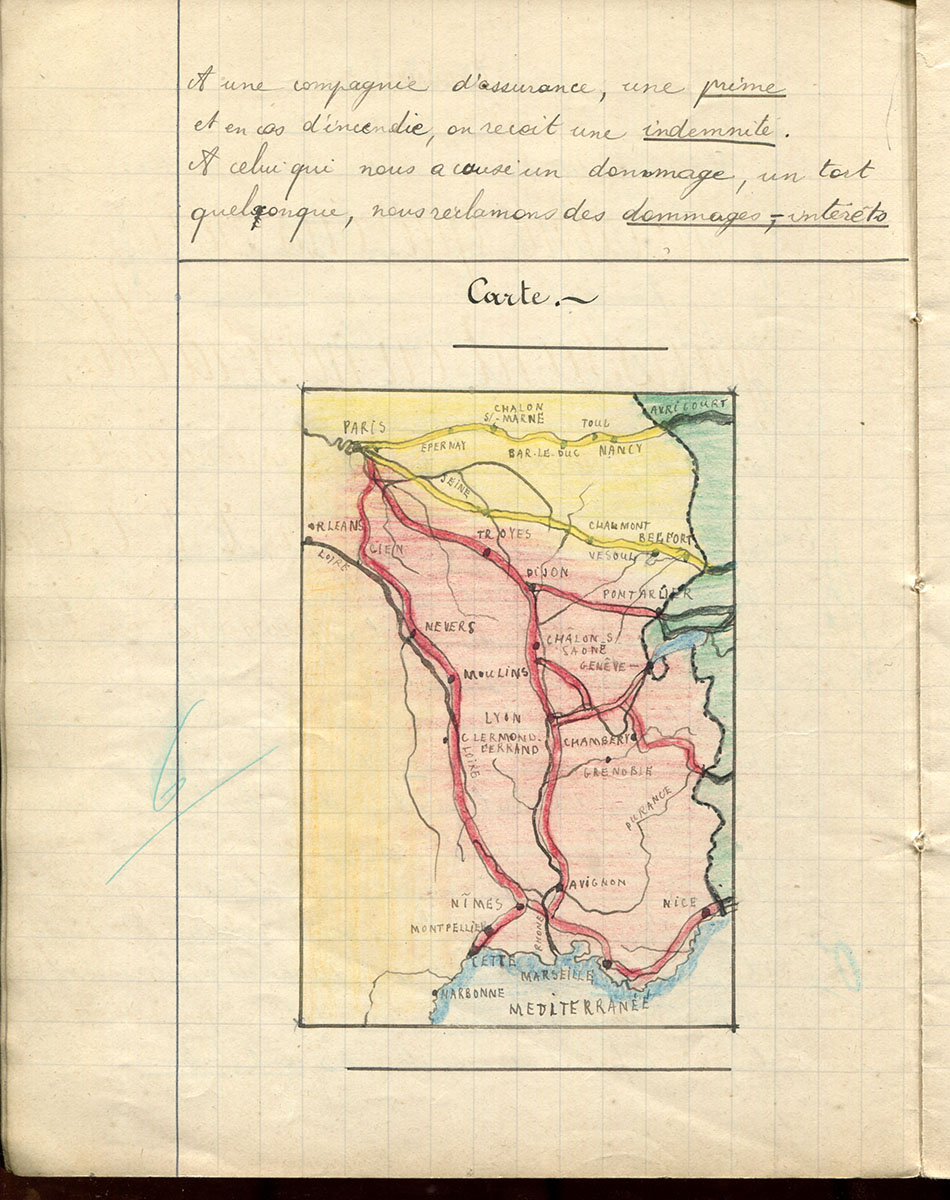 A une compagnie d'assurance, une prime
et en cas d'incendie, on recoit une indemnité.
A celui qui nous a causé un dommage, un tort
quelconque, nous réclamons des dommages-intérêts
Carte.~
AVRICOURT
CHALON
S/-MARNE
PARIS
TOUL
EPERNAY
BAR-LE-DUC
NANCY
SEINE
ORLEANS
TROYES
CHAUMONT
BELFORT
GIEN
VESOUL
LOIRE
DIJON
PONTARLIER
NEVERS
CHÂLON S/
SAONE
GENÊVE
MOULINS
LYON
CLERMOND-
FERRAND
CHAMBERY
LOIRE
GRENOBLE
DURANCE
AVIGNON
NÎMES
NICE
MONTPELLIER
RHONE
CETTE
MARSEILLE
NARBONNE
MEDITERRANÉE
6